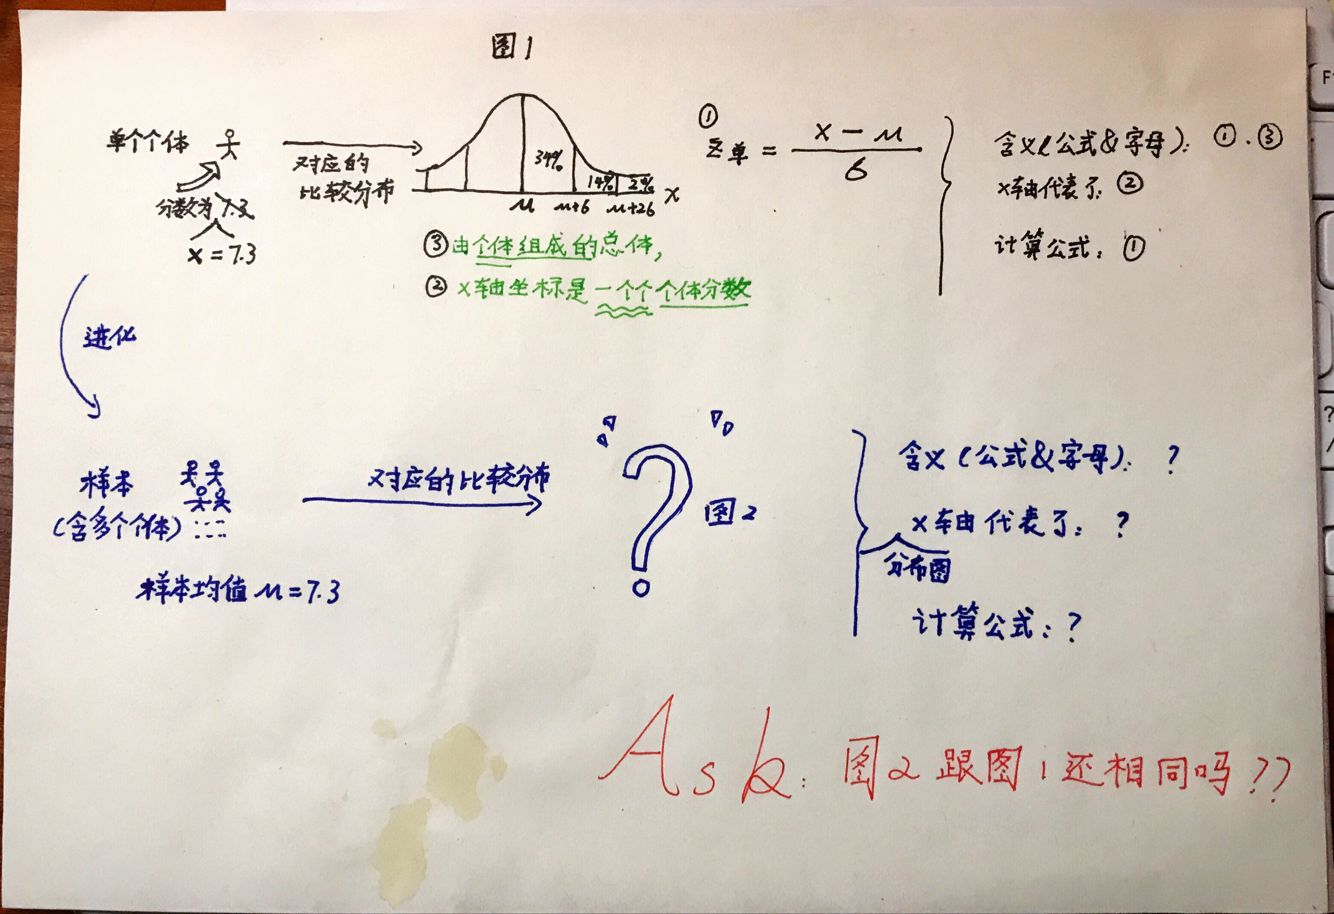 图1
单个个体
对应的
比较分布
分数为 7.3
x = 7.3
34%
14%
2%
μ μ+6 μ+26 x
① Z单 = x - μ / 6
含义(公式&字母): ①.③
x轴代表了: ②
计算公式: ①
③由个体组成的总体,
② x轴坐标是一个个个体分数
进化
样本
(含多个个体)
样本均值 μ = 7.3
对应的比较分布
?
图2
含义(公式&字母): ?
x轴代表了: ?
分布图
计算公式: ?
Ask: 图2跟图1还相同吗??
F
?
/